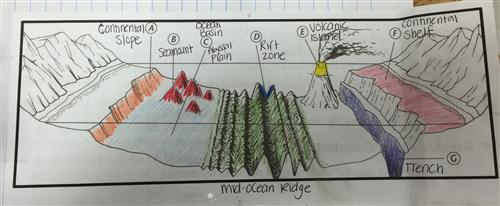 Continental
Slope
A
B
Seamount
Ocean
Basin
C
Abyssal
Plain
D
Rift
zone
E
Volcanic
island
Continental
F
shelf
G
Trench
mid-ocean Ridge